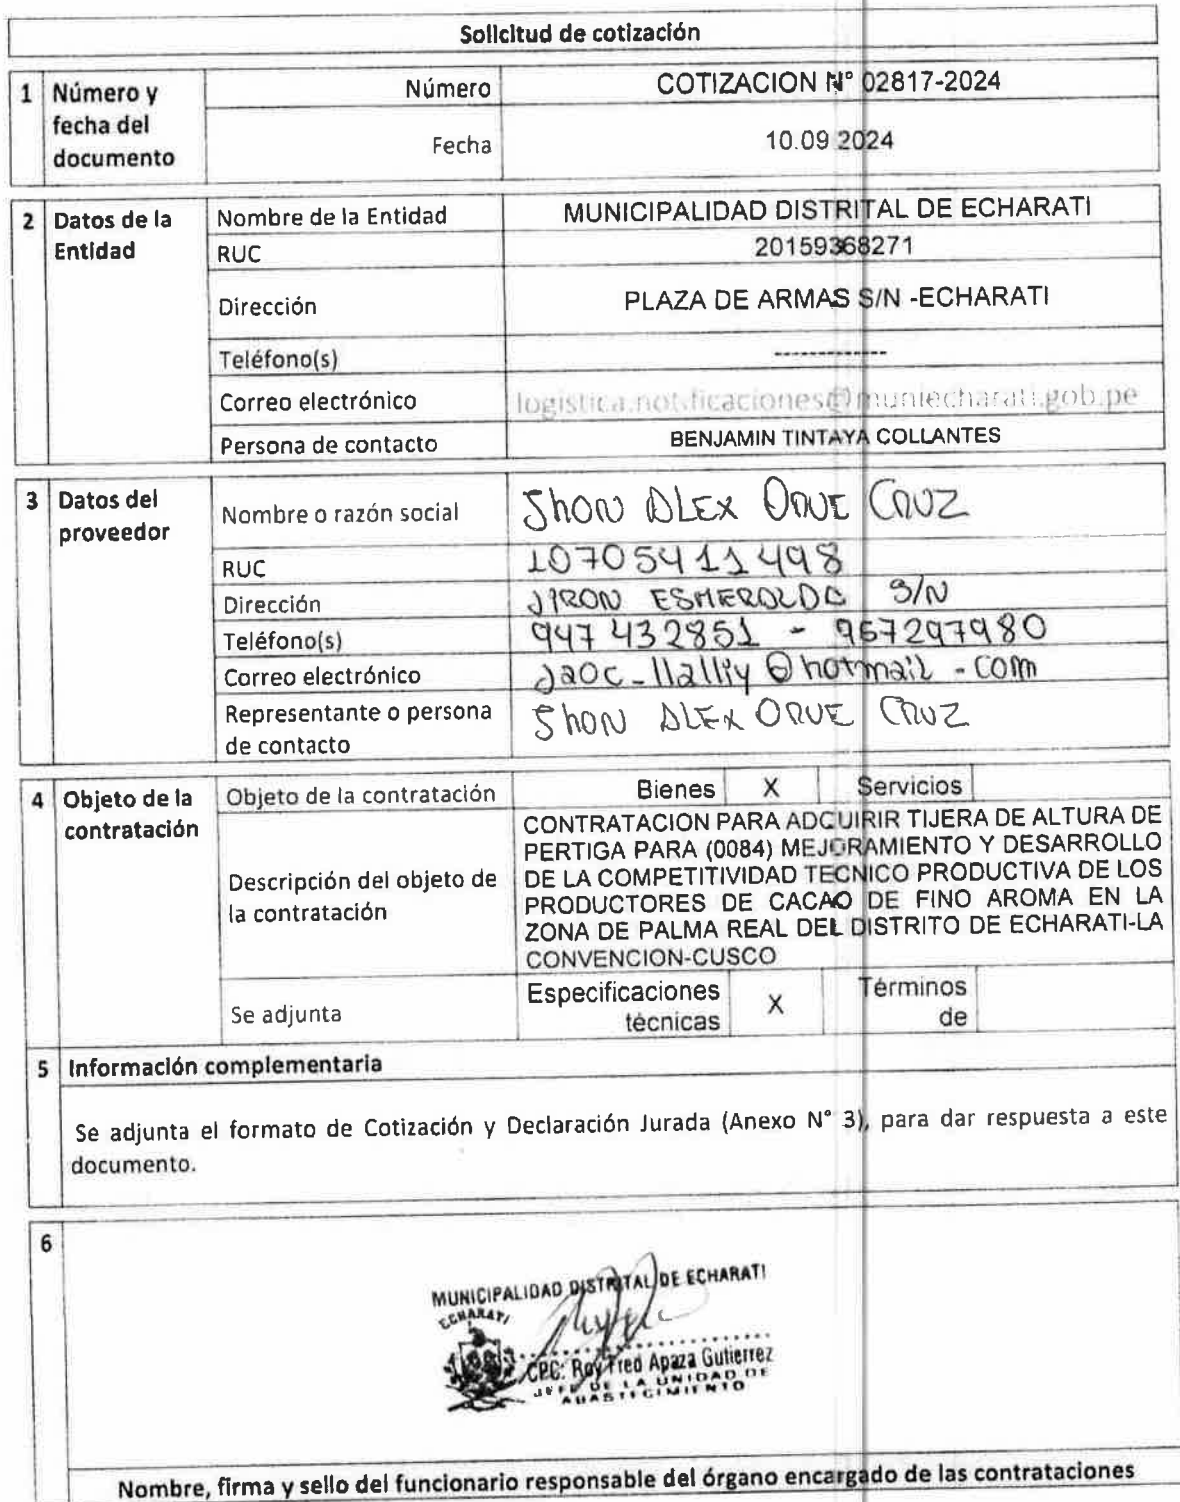 Solicitud de cotización
1 Número y fecha del documento
Número COTIZACION N° 02817-2024
Fecha 10.09.2024
2 Datos de la Entidad
Nombre de la Entidad MUNICIPALIDAD DISTRITAL DE ECHARATI
RUC 20159368271
Dirección PLAZA DE ARMAS S/N -ECHARATI
Teléfono(s) -------------
Correo electrónico logistica.notificaciones@muniecharati.gob.pe
Persona de contacto BENJAMIN TINTAYA COLLANTES
3 Datos del proveedor
Nombre o razón social Jhon Alex Orue Cruz
RUC 10705411498
Dirección JIRON ESMERALDA S/N
Teléfono(s) 947 432851 - 957297980
Correo electrónico jaoc-llalliy@hotmail.com
Representante o persona de contacto Jhon Alex Orue Cruz
4 Objeto de la contratación
Objeto de la contratación Bienes X Servicios
Descripción del objeto de la contratación
CONTRATACION PARA ADQUIRIR TIJERA DE ALTURA DE
PERTIGA PARA (0084) MEJORAMIENTO Y DESARROLLO
DE LA COMPETITIVIDAD TECNICO PRODUCTIVA DE LOS
PRODUCTORES DE CACAO DE FINO AROMA EN LA
ZONA DE PALMA REAL DEL DISTRITO DE ECHARATI-LA
CONVENCION-CUSCO
Se adjunta Especificaciones técnicas X Términos de
5 Información complementaria
Se adjunta el formato de Cotización y Declaración Jurada (Anexo N° 3), para dar respuesta a este
documento.
6
MUNICIPALIDAD DISTRITAL DE ECHARATI
ECHARATI
CPC: Roy Fred Apaza Gutierrez
JEFE DE LA UNIDAD DE
ABASTECIMIENTO
Nombre, firma y sello del funcionario responsable del órgano encargado de las contrataciones